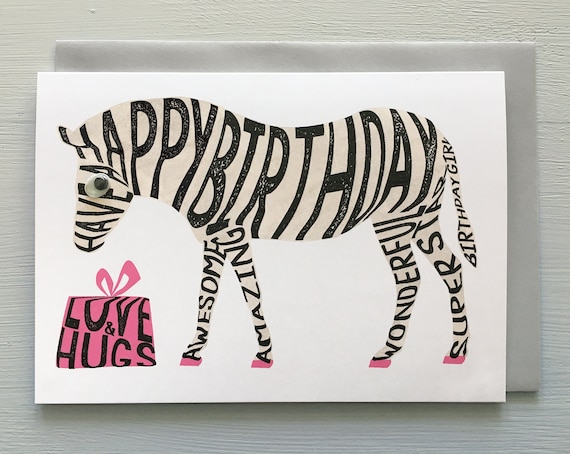 HAVE A
HAPPY BIRTHDAY
AWESOME
AMAZING
WONDERFUL
SUPER STAR
BIRTHDAY GIRL
LOVE
&
HUGS